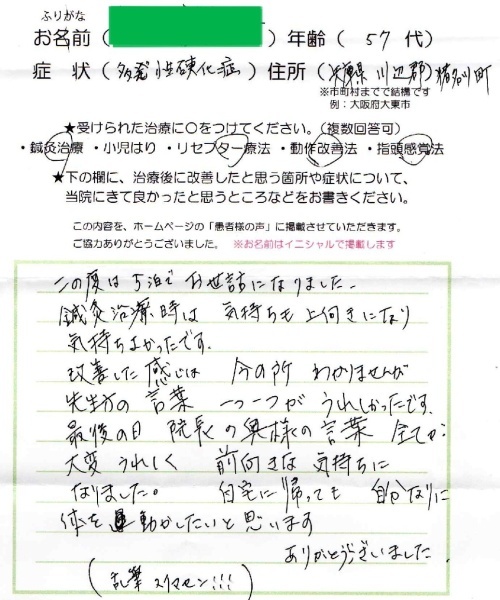 ふりがな
お名前 ( ) 年齢 ( 57 代)
症 状 (多発性硬化症) 住所 (兵庫県 川辺郡 猪名川町
※市町村までで結構です
例：大阪府大東市
★受けられた治療に○をつけてください。(複数回答可)
・鍼灸治療 ・小児はり ・リセプター療法 ・動作改善法 ・指頭感覚法
★下の欄に、治療後に改善したと思う箇所や症状について、
当院にきて良かったと思うところなどをお書きください。
この内容を、ホームページの「患者様の声」に掲載させていただきます。
ご協力ありがとうございました。 ※お名前はイニシャルで掲載します
この度は 5泊で お世話になりました。
鍼灸治療時は 気持ちも上向きになり
気持ちよかったです。
改善した感じは 今の所 わかりませんが
先生方の 言葉 一つ一つが うれしかったです。
最後の日 院長の奥様の言葉 全てが
大変うれしく 前向きな 気持ちに
なりました。 自宅に帰っても 自分なりに
体を 動かしたいと思います
ありがとうございました
(乱筆 スイマセン!!!)